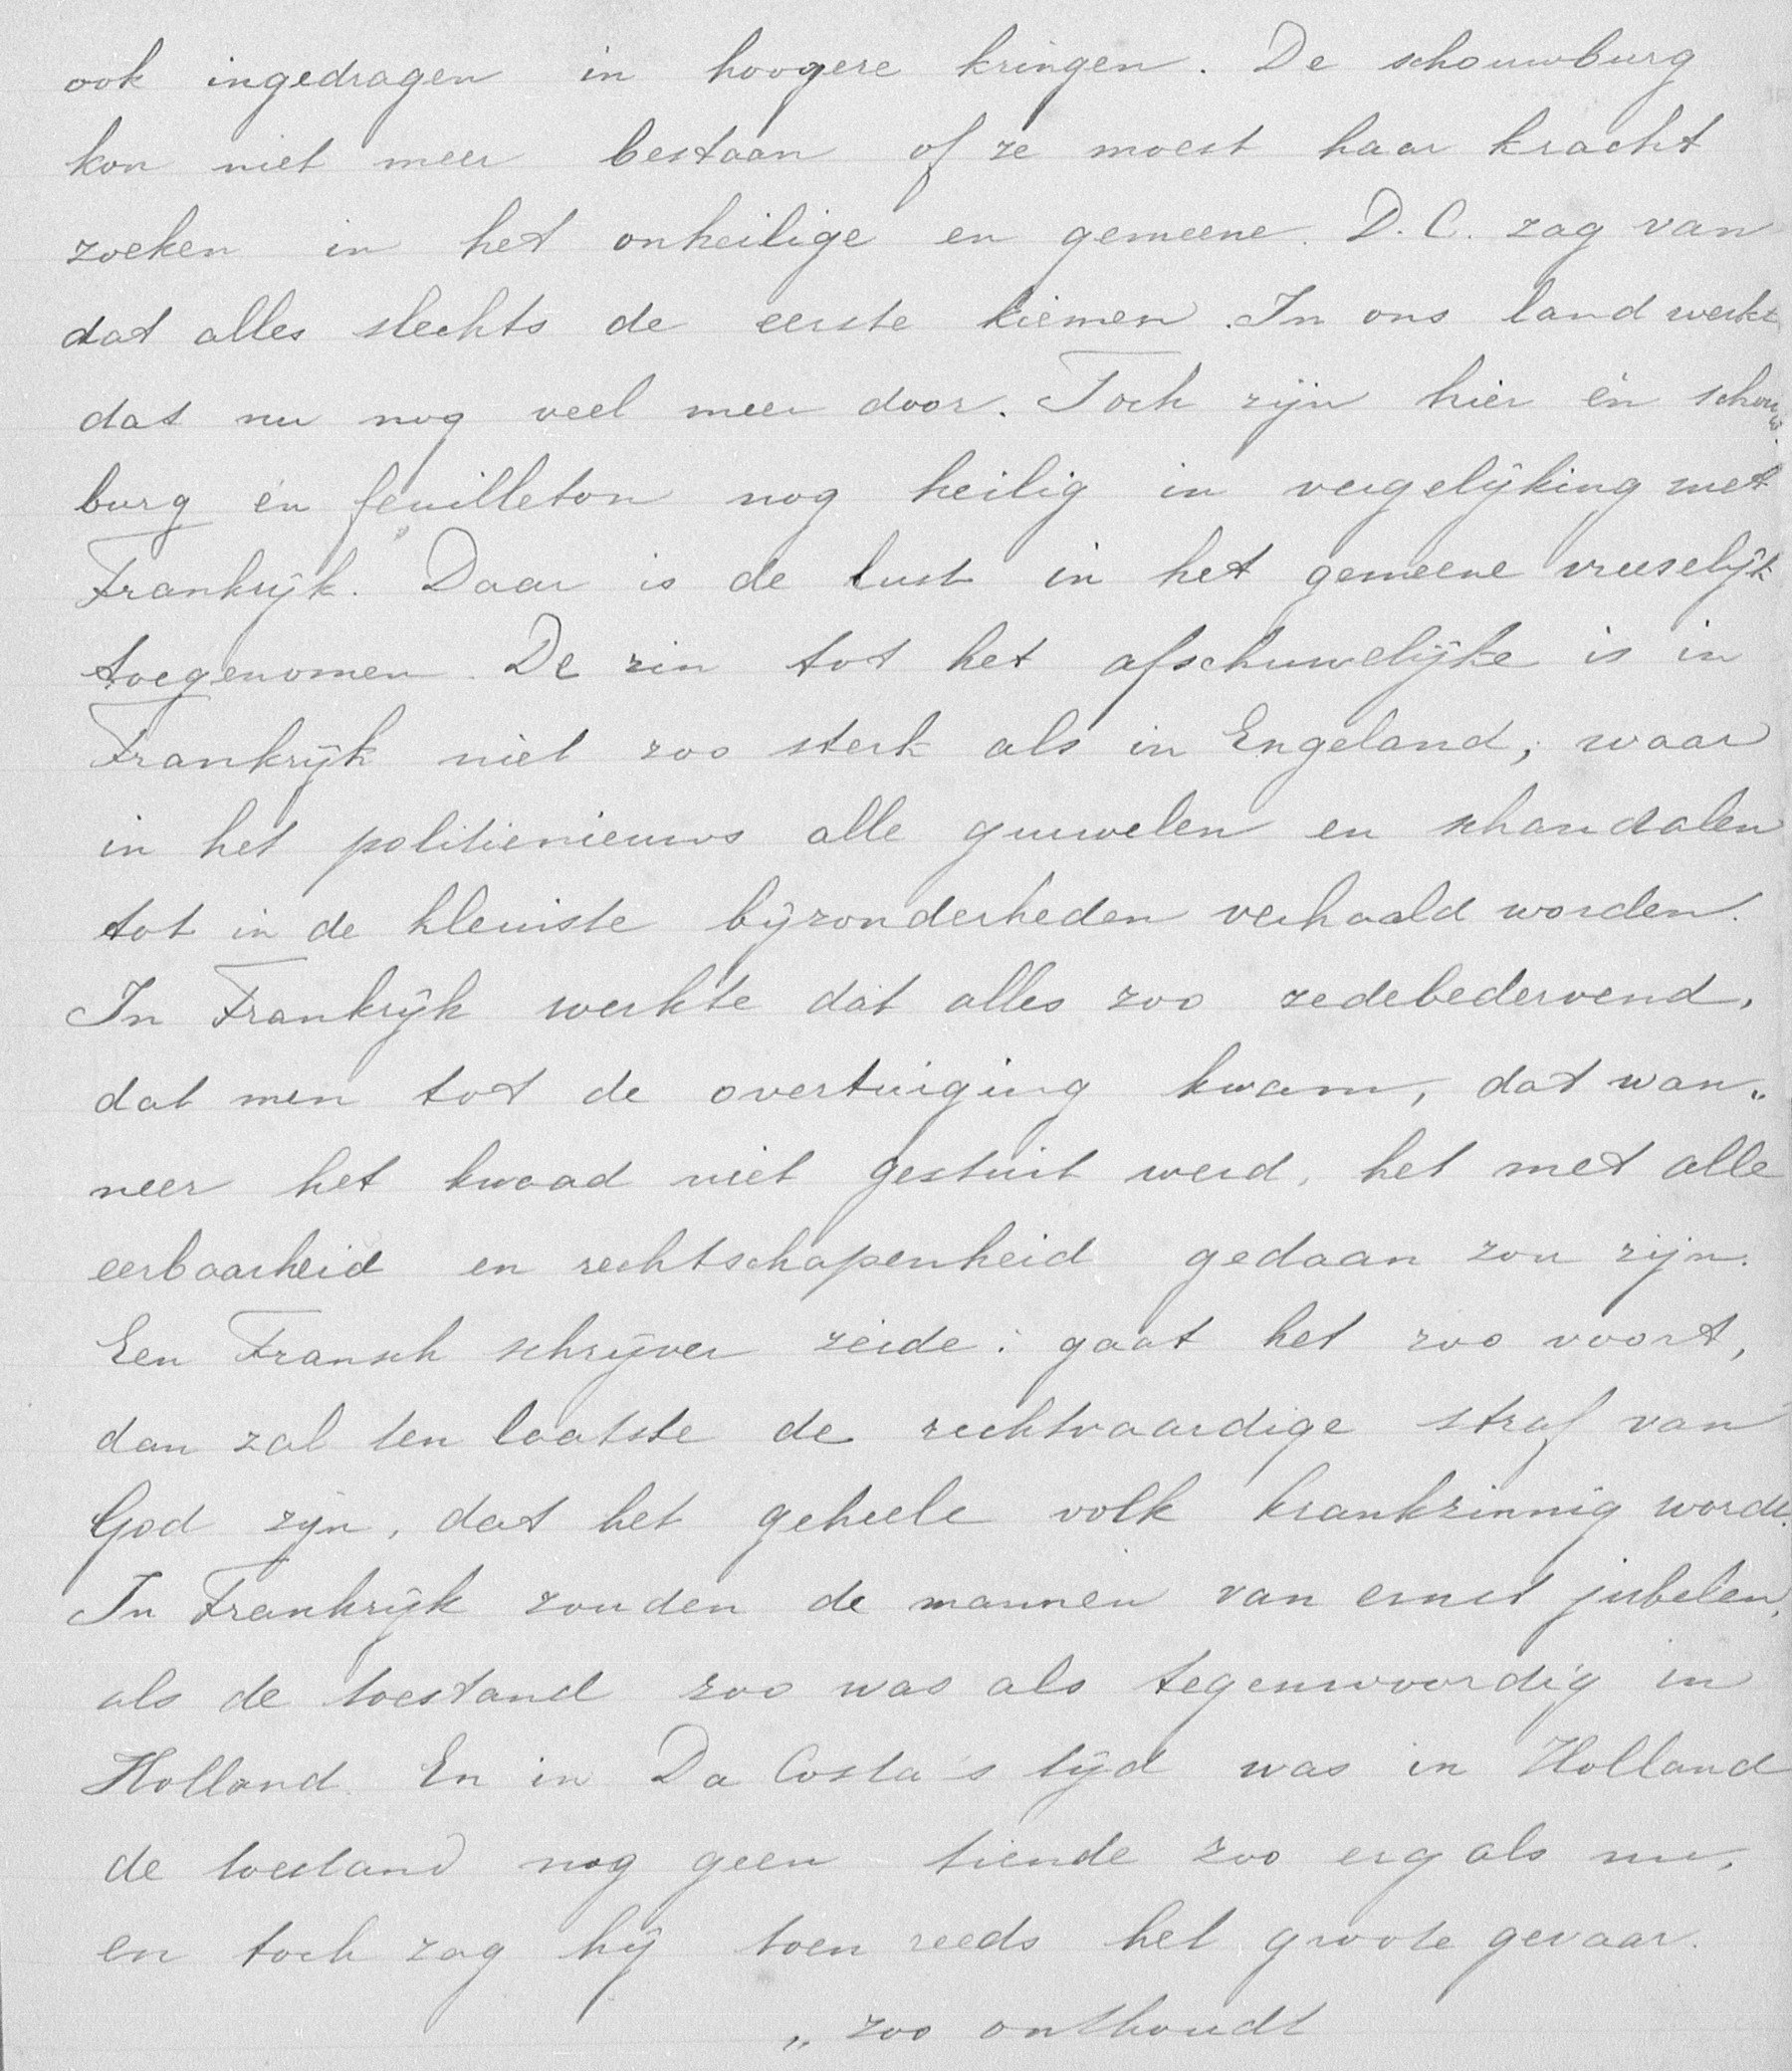 ook ingedragen in hoogere kringen. De schouwburg
kon niet meer bestaan of ze moest haar kracht
zoeken in het onheilige en gemeene. D.C. zag van
dat alles slechts de eerste kiemen. In ons land werkt
dat nu nog veel meer door. Toch zijn hier én schouw
burg én feuilleton nog heilig in vergelijking met
Frankrijk. Daar is de lust in het gemeene vreeselijk
toegenomen. De zin tot het afschuwelijke is in
Frankrijk niet zoo sterk als in Engeland, waar
in het politienieuws alle gruwelen en schandalen
tot in de kleinste bijzonderheden verhaald worden.
In Frankrijk werkte dat alles zoo zedebedervend,
dat men tot de overtuiging kwam, dat wan„
neer het kwaad niet gestuit werd, het met alle
eerbaarheid en rechtschapenheid gedaan zou zijn.
Een Fransch schrijver zeide: gaat het zoo voort,
dan zal ten laatste de rechtvaardige straf van
God zijn, dat het geheele volk krankzinnig wordt.
In Frankrijk zouden de mannen van ernst jubelen,
als de toestand zoo was als tegenwoordig in
Holland. En in Da Costa's tijd was in Holland
de toestand nog geen tiende zoo erg als nu,
en toch zag hij toen reeds het groote gevaar.
„ zoo onthoudt